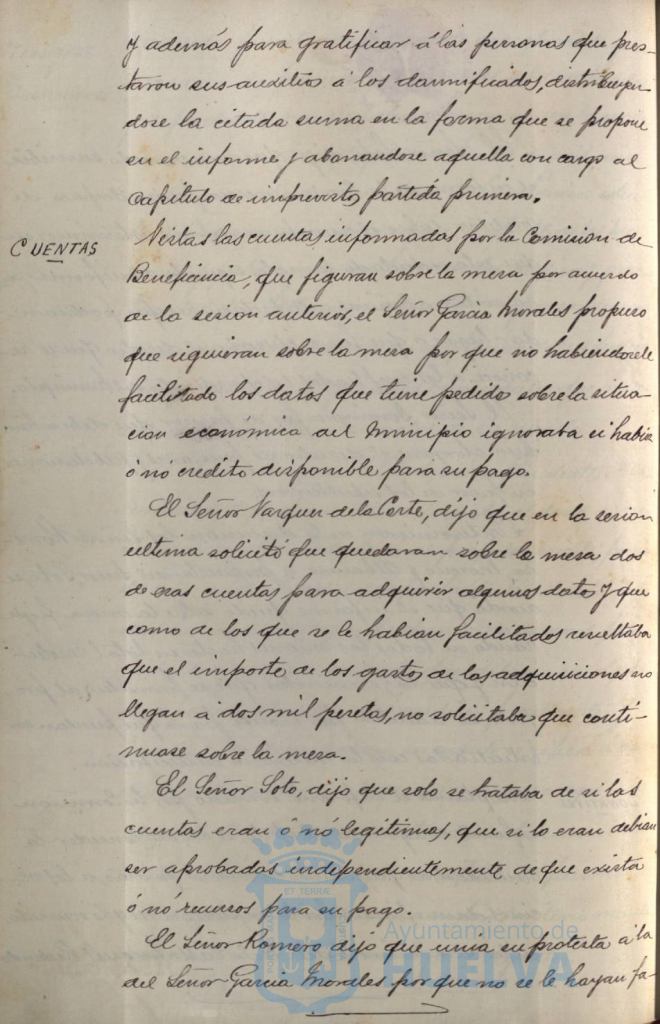 y además para gratificar á las personas que pres-
taron sus auxilios á los damnificados, distribuyen-
dose la citada suma en la forma que se propone
en el informe y abonandose aquella con cargo al
Capitulo de imprevistos partida primera.
CUENTAS
Vistas las cuentas informadas por la Comision de
Beneficencia, que figuran sobre la mesa por acuerdo
de la sesion anterior, el Señor Garcia Morales propuso
que siguieran sobre la mesa por que no habiendosele
facilitado los datos que tiene pedido sobre la situa-
cion económica del Municipio ignoraba si habia
ó nó credito disponible para su pago.
El Señor Vazquez de la Corte, dijo que en la sesion
ultima solicitó que quedaran sobre la mesa dos
de esas cuentas para adquirir algunos datos y que
como de los que se le habian facilitados resultaba
que el importe de los gastos de las adquisiciones no
llegan á dos mil pesetas, no solicitaba que conti-
nuase sobre la mesa.
El Señor Soto, dijo que solo se trataba de si las
cuentas eran ó nó legitimas, que si lo eran debian
ser aprobadas independientemente de que exista
ó nó recursos para su pago.
El Señor Romero dijo que unia su protesta á la
del Señor Garcia Morales por que no se le hayan fa-
ET TERRÆ
Ayuntamiento de
HUELVA